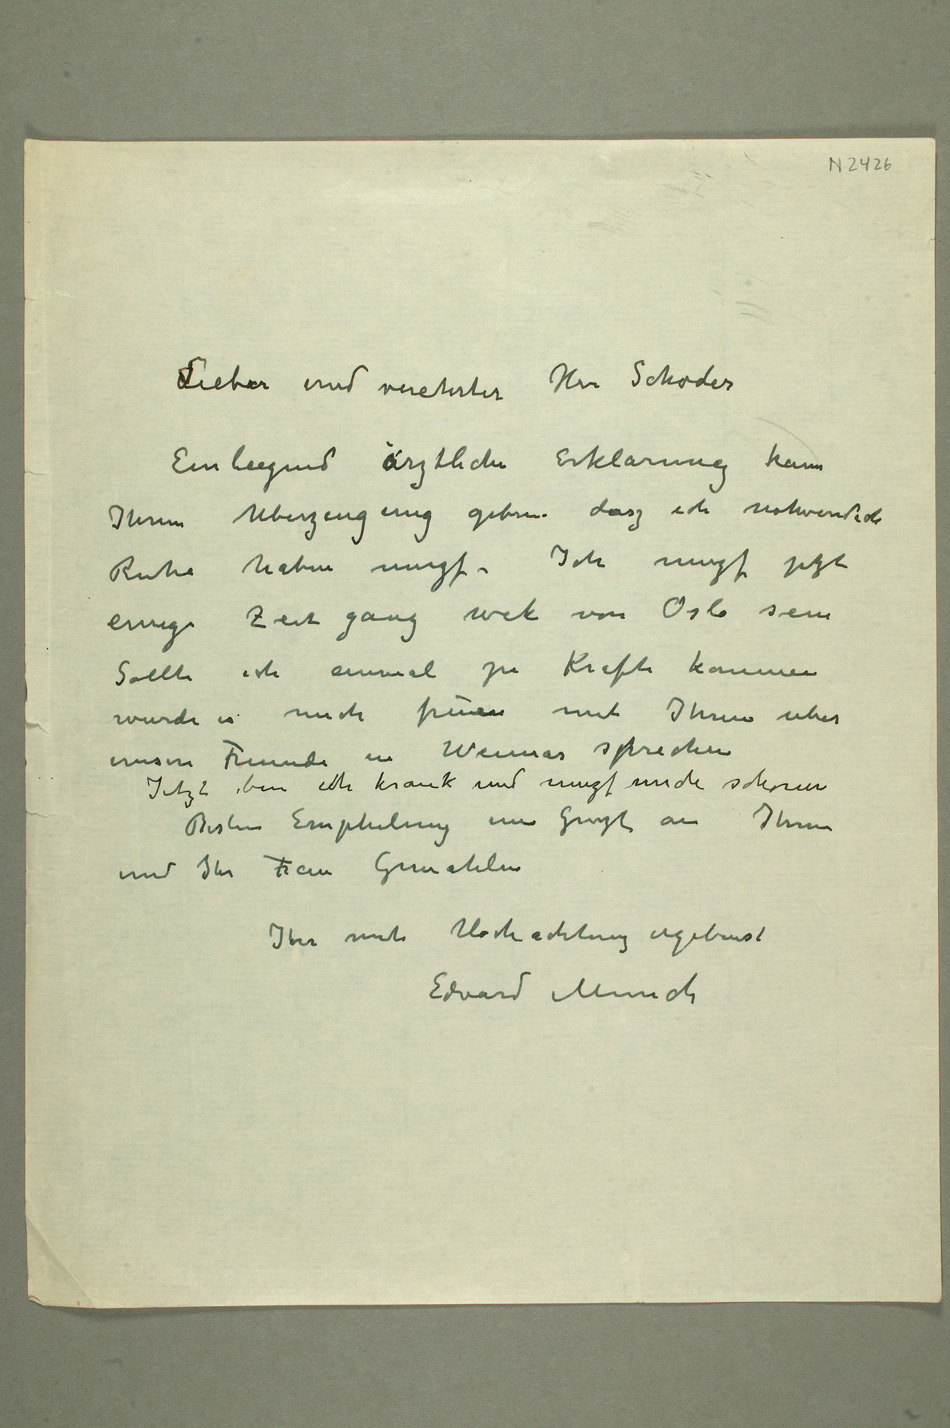 N 2426
Lieber und verehrter Herr Schoder
Einliegend ärztliche Erklärung kann
Ihnen Uberzeugung geben dasz ich notwendich
Ruhe haben musz. Ich musz jetzt
einige Zeit ganz wek von Oslo sein
Sollte ich einmal zu Krafte kommen
wurde es mich freuen mit Ihnen uber
unsere Freunde in Weimar sprechen
Jetzt bin ich krank und musz mich schonen
Besten Empfhelung und an Ihnen
und Ihr Frau Gemahlin
Ihr mit Hochachtung ergebenst
Edvard Munch